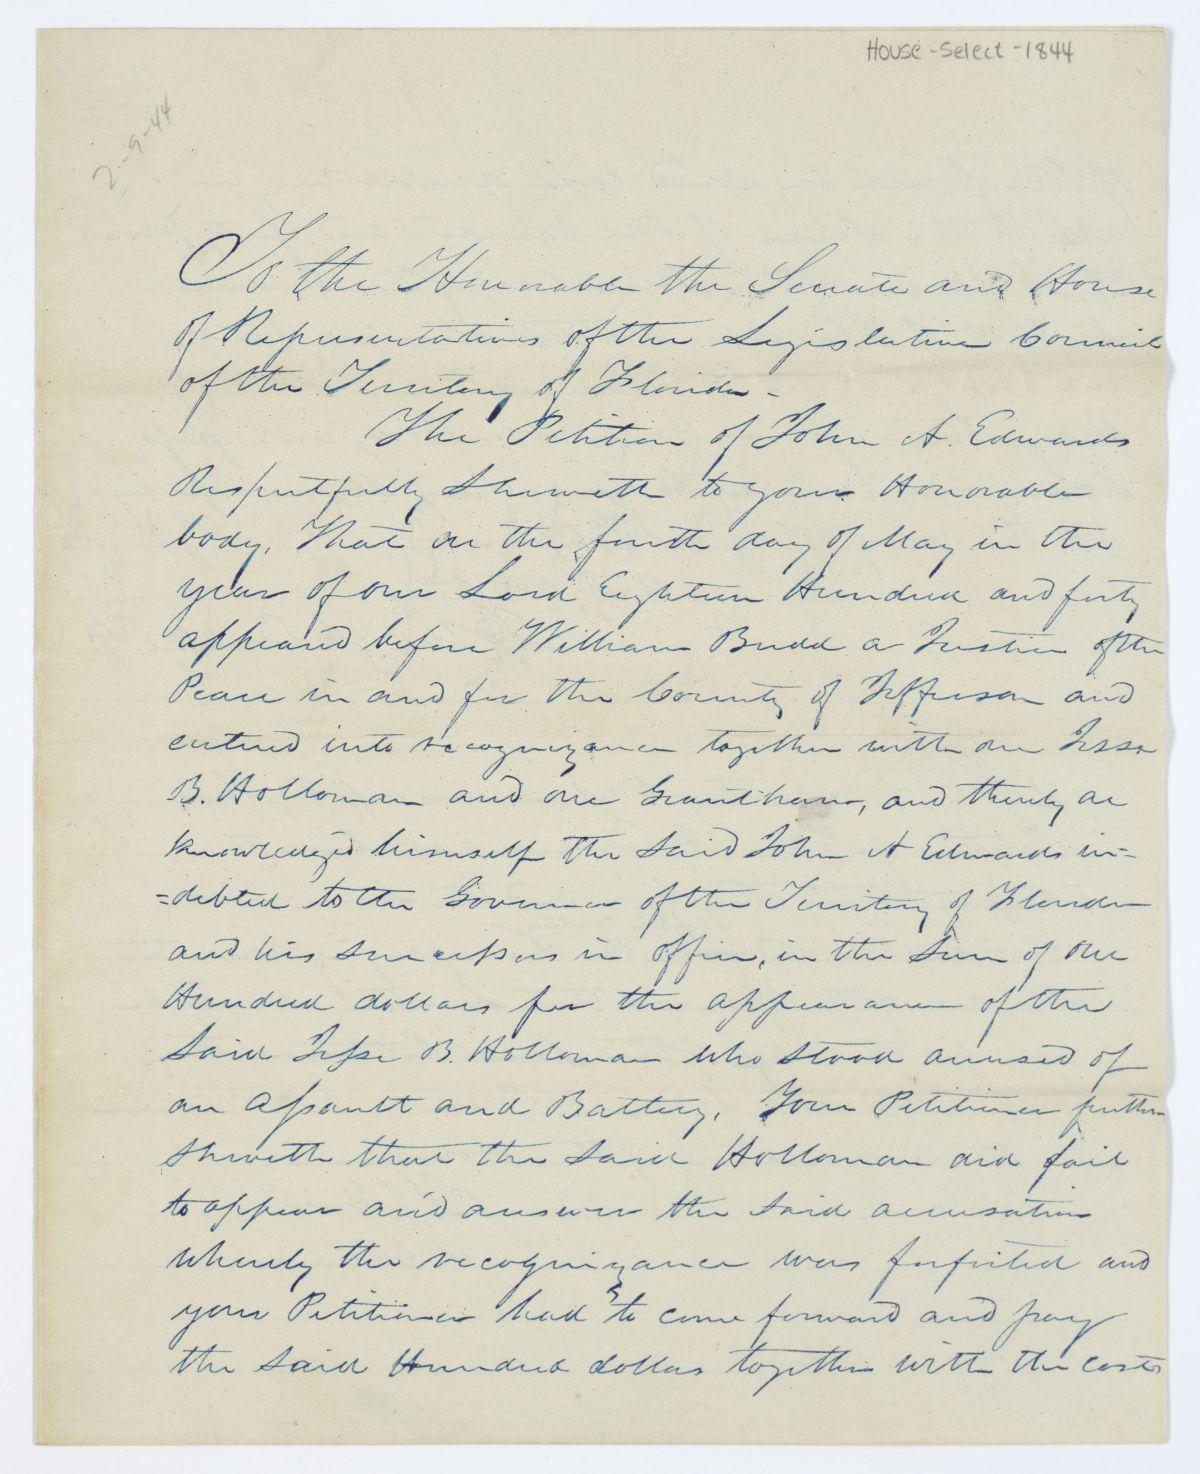 House-Select-1844
2-9-44
To the Honorable the Senate and House
of Representatives of the Legislative Council
of the Territory of Florida -
The Petition of John A. Edwards
Respectfully Sheweth to your Honorable
body, That on the fourth day of May in the
year of our Lord Eighteen Hundred and forty
appeared before William Budd a Justice of the
Peace in and for the County of Jefferson and
entered into recognizance together with one Jesse
B. Holloman and one Grantham, and thereby ac
knowledged himself the said John A Edwards in-
=debted to the Governor of the Territory of Florida
and his successors in office, in the Sum of One
Hundred dollars for the appearance of the
Said Jesse B. Holloman who stood accused of
an Assault and Battery. Your Petitioner further
Sheweth that the said Holloman did fail
to appear and answer the said accusation
whereby the recognizance was forfeited and
your Petitioner had to come forward and pay
the said Hundred dollars together with the costs